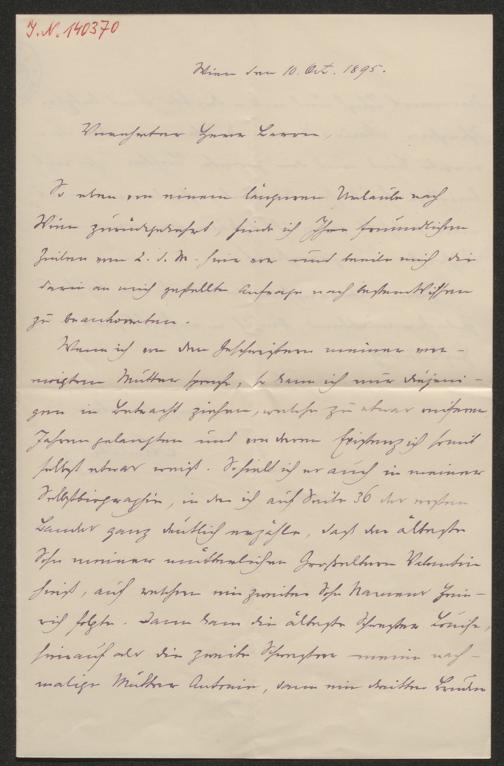 J. N. 140370
Wien den 10. Oct. 1895.
Verehrter Herr Baron,
So eben von einem längeren Urlaube nach
Wien zurückgekehrt, finde ich Ihre freundlichen
Zeilen vom 2. d. M. hier vor und beeile mich die
darin an mich gestellte Anfrage nach bestem Wissen
zu beantworten.
Wenn ich von den Geschwistern meiner ver-
ewigten Mutter sprach, so kann ich nur diejeni-
gen in Betracht ziehen, welche zu etwas reiferen
Jahren gelangten und von deren Existenz ich somit
selbst etwas weiß. So hielt ich es auch in meiner
Selbstbiographie, in der ich auf Seite 36 des ersten
Bandes ganz deutlich erzähle, daß der älteste
Sohn meiner mütterlichen Großeltern Valentin
hieß, auf welchen ein zweiter Sohn Namens Hein-
rich folgte. Dann kam die älteste Schwester Louise,
hierauf als die zweite Schwester meine nach-
malige Mutter Antonie, dann ein dritter Bruder